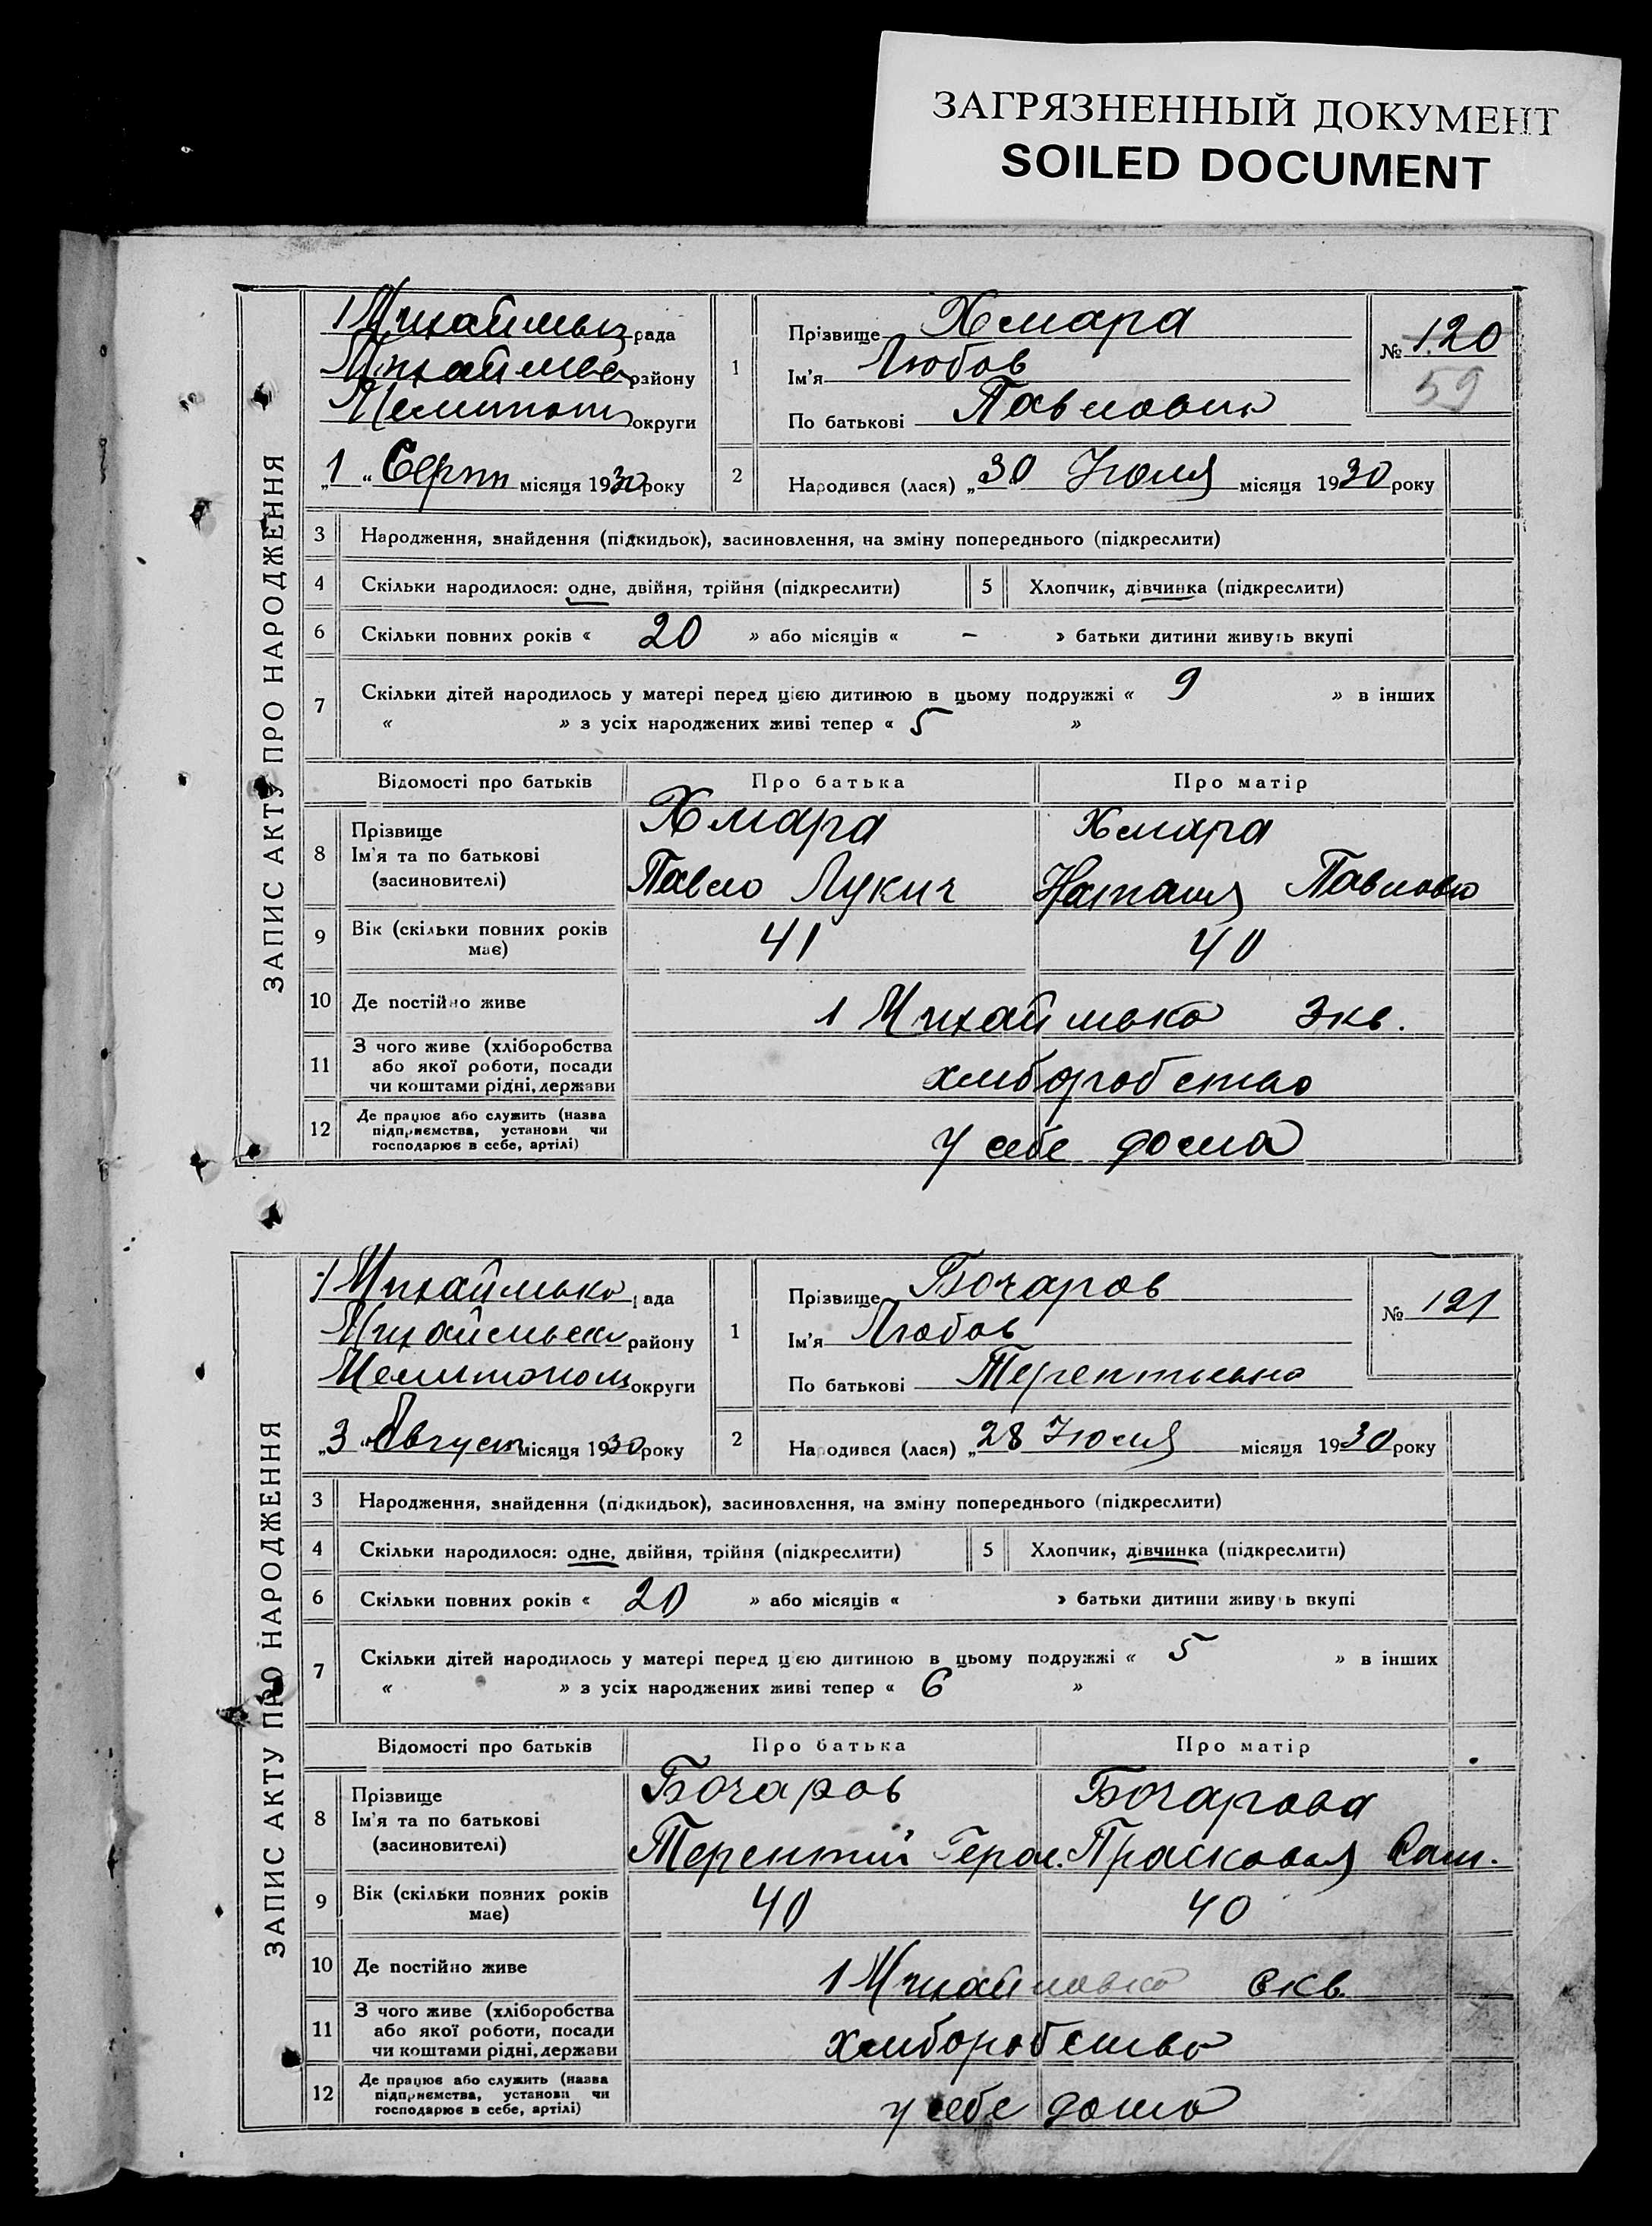 ЗАГРЯЗНЕННЫЙ ДОКУМЕНТ
SOILED DOCUMENT
ЗАПИС АКТУ ПРО НАРОДЖЕННЯ
рада
району
округи
„1“ Серпн місяця 1930 року
1
Прізвище Хмара
Ім'я Любов
По батькові Павловна
№ 120
59
2
Народився (лася) „30 Июля місяця 1930 року
3 Народження, знайдення (підкидьок), засиновлення, на зміну попереднього (підкреслити)
4 Скільки народилося: одне, двійня, трійня (підкреслити) 5 Хлопчик, дівчинка (підкреслити)
6 Скільки повних років « 20 » або місяців « – » батьки дитини живуть вкупі
7 Скільки дітей народилось у матері перед цією дитиною в цьому подружжі « 9 » в інших
« » з усіх народжених живі тепер « 5 »
Відомості про батьків Про батька Про матір
8 Прізвище
Ім'я та по батькові
(засиновителі)
Хмара Хмара
Павло Лукич Наталія Павловна
9 Вік (скільки повних років
має)
41 40
10 Де постійно живе 1 Михайлівка 3 кв.
11 З чого живе (хліборобства
або якої роботи, посади
чи коштами рідні, держави
хліборобство
12 Де працює або служить (назва
підприємства, установи чи
господарює в себе, артілі)
у себе дома
ЗАПИС АКТУ ПРО НАРОДЖЕННЯ
рада
району
округи
„3“ Август місяця 1930 року
1
Прізвище Бочаров
Ім'я Любов
По батькові Терентьевна
№ 121
2
Народився (лася) „28 Июля місяця 1930 року
3 Народження, знайдення (підкидьок), засиновлення, на зміну попереднього (підкреслити)
4 Скільки народилося: одне, двійня, трійня (підкреслити) 5 Хлопчик, дівчинка (підкреслити)
6 Скільки повних років « 20 » або місяців « » батьки дитини живуть вкупі
7 Скільки дітей народилось у матері перед цією дитиною в цьому подружжі « 5 » в інших
« » з усіх народжених живі тепер « 6 »
Відомості про батьків Про батька Про матір
8 Прізвище
Ім'я та по батькові
(засиновителі)
Бочаров Бочарова
Терентий Герас. Прасковья
9 Вік (скільки повних років
має)
40 40
10 Де постійно живе 1 Михайловка кв.
11 З чого живе (хліборобства
або якої роботи, посади
чи коштами рідні, держави
хліборобство
12 Де працює або служить (назва
підприємства, установи чи
господарює в себе, артілі)
у себе дома